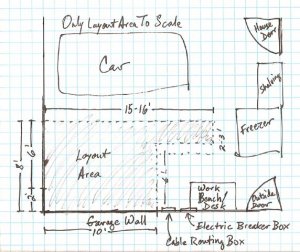 Only Layout Area To Scale
House
Door
Car
Shelving
15-16'
Freezer
2-3'
8'
6'
Layout
Area
6'
2'
Work
Bench/
Desk
Outside
Door
Garage Wall
10'
Electric Breaker Box
Cable Routing Box